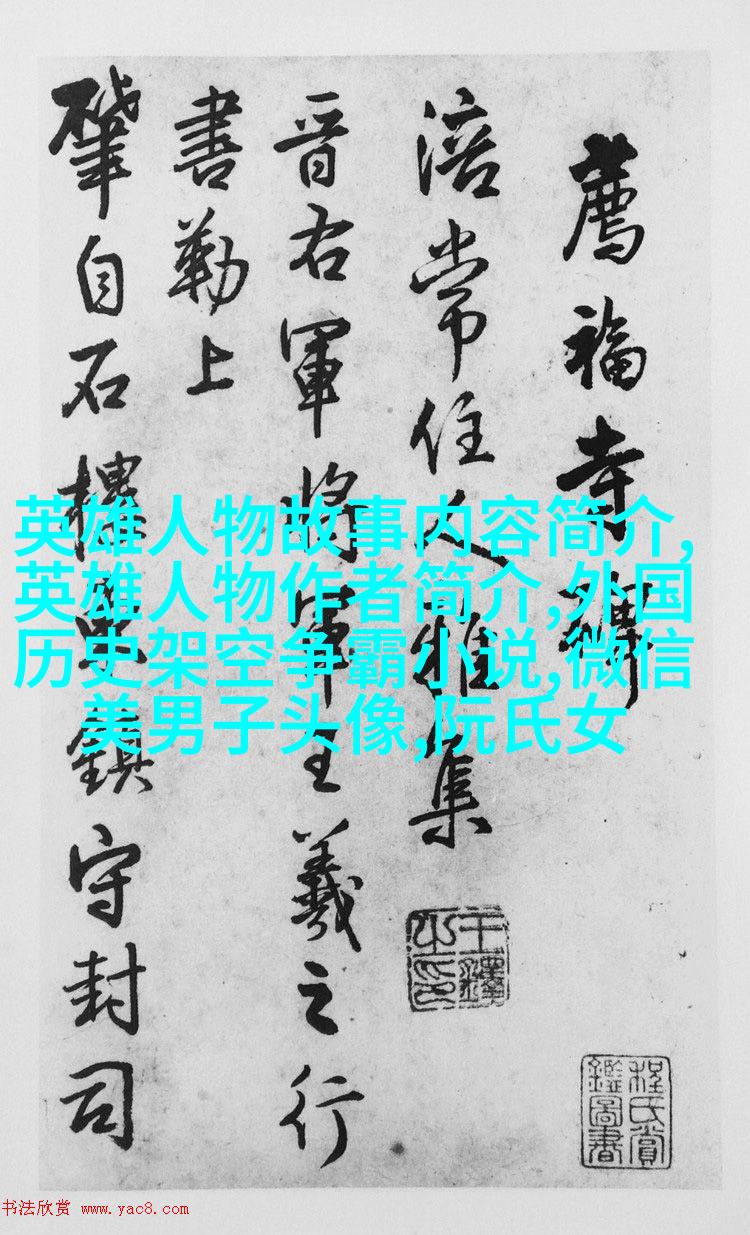 薦福寺
涪常住人雅集
晉右軍將軍王羲之行
書勒上
肇自石樓鎮守封司
英雄人物故事内容简介,
英雄人物作者简介,外国
历史架空争霸小说,微信
美男子头像,阮氏女
王鐸之印
程氏賞鑑圖書
书法欣赏 www.yac8.com